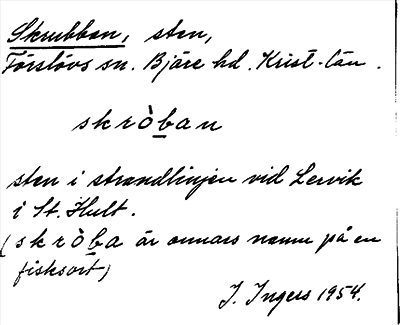 Skrubban, sten,
Förslövs sn. Bjäre hd. Krist. län.
skròban
sten i strandlinjen vid Lervik
i St. Hult.
(skròba är annars namn på en
fisksort)
I. Ingers 1954.